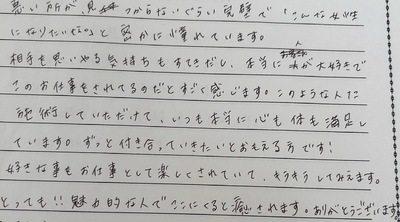 悪い所が、見つからないぐらい完璧で「こんな女性
になりたいな〜」と密かに憧れています。
相手を思いやる気持ちもすてきだし、本当に人が大好きで
このお仕事をされてるのだとすごく感じます。このような人に
施術していただけて、いつも本当に心も体も満足し
ています。ずっと付き合っていきたいとおもえる方です!
好きな事もお仕事として楽しくされていて、キラキラしてみえます。
とっても!!魅力的な人でここにくると癒されます。ありがとうございます